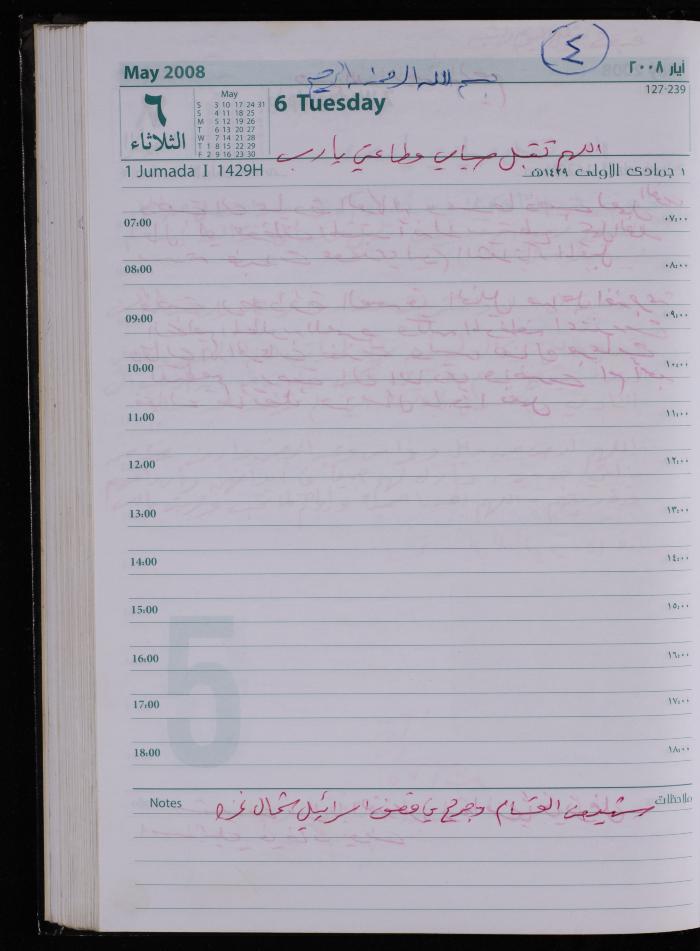 ٤
May 2008
أيار ٢٠٠٨
بسم الله الرحمن الرحيم
127-239
٦
الثلاثاء
May
S 3 10 17 24 31
S 4 11 18 25
M 5 12 19 26
T 6 13 20 27
W 7 14 21 28
T 1 8 15 22 29
F 2 9 16 23 30
6 Tuesday
اللهم تقبل صيامي وطاعتي يا رب
1 Jumada I 1429H
١ جمادى الأولى ١٤٢٩هـ
07:00 ٠٧:٠٠
08:00 ٠٨:٠٠
09:00 ٠٩:٠٠
10:00 ١٠:٠٠
11:00 ١١:٠٠
12:00 ١٢:٠٠
13:00 ١٣:٠٠
14:00 ١٤:٠٠
15:00 ١٥:٠٠
16:00 ١٦:٠٠
17:00 ١٧:٠٠
18:00 ١٨:٠٠
5
Notes ملاحظات
القسام وجرح في قصف اسرائيلي شمال غزة